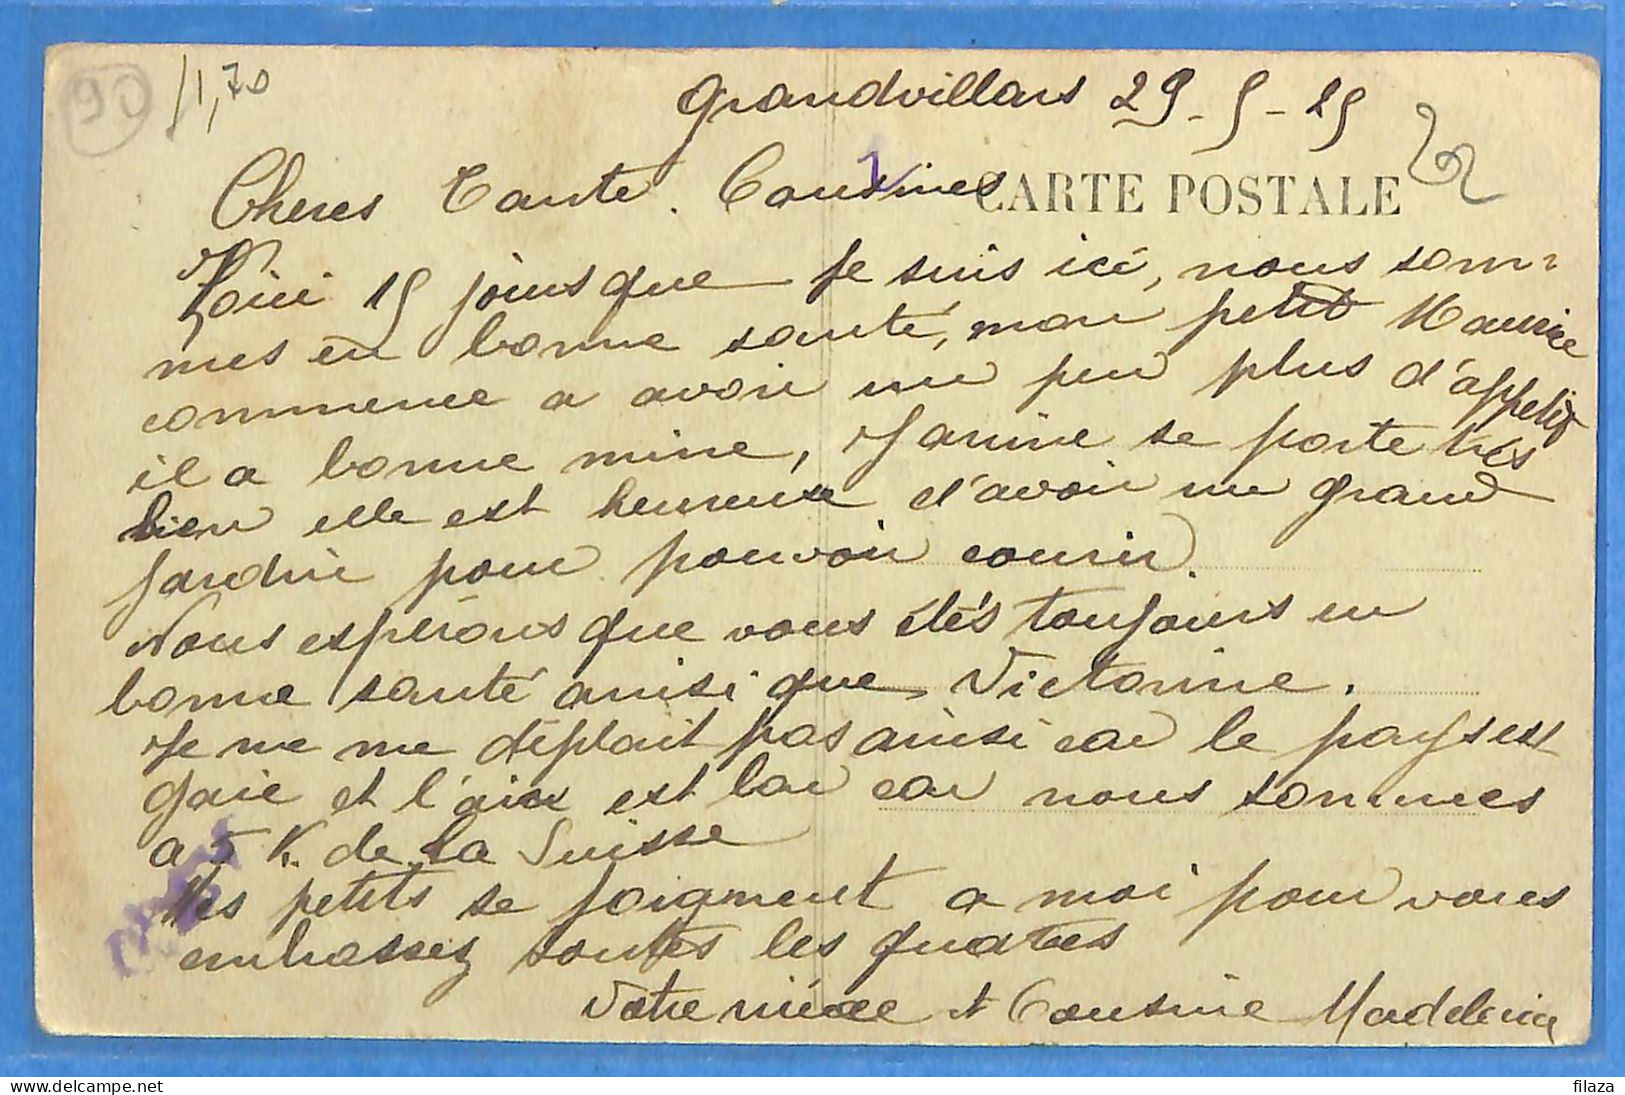 90
1,70
Grandvillars 29-5-25
CARTE POSTALE
Cheres Tante. Cousines
Voici 15 jours que je suis ici, nous som-
mes en bonne santé, mon petit Maurice
commence a avoir un peu plus d'appetit
il a bonne mine, Janine se porte très
bien elle est heureuse d'avoir un grand
jardin pour pouvoir courir.
Nous espérons que vous étés toujours en
bonne santé ainsi que Victorine.
Je ne me déplait pas ainsi car le pays est
gaie et l'air est bon car nous sommes
a 5 K. de la Suisse
Mes petits se joignent a moi pour vous
embassez toutes les quatres
Votre nièce et Cousine Madeleine
filaza